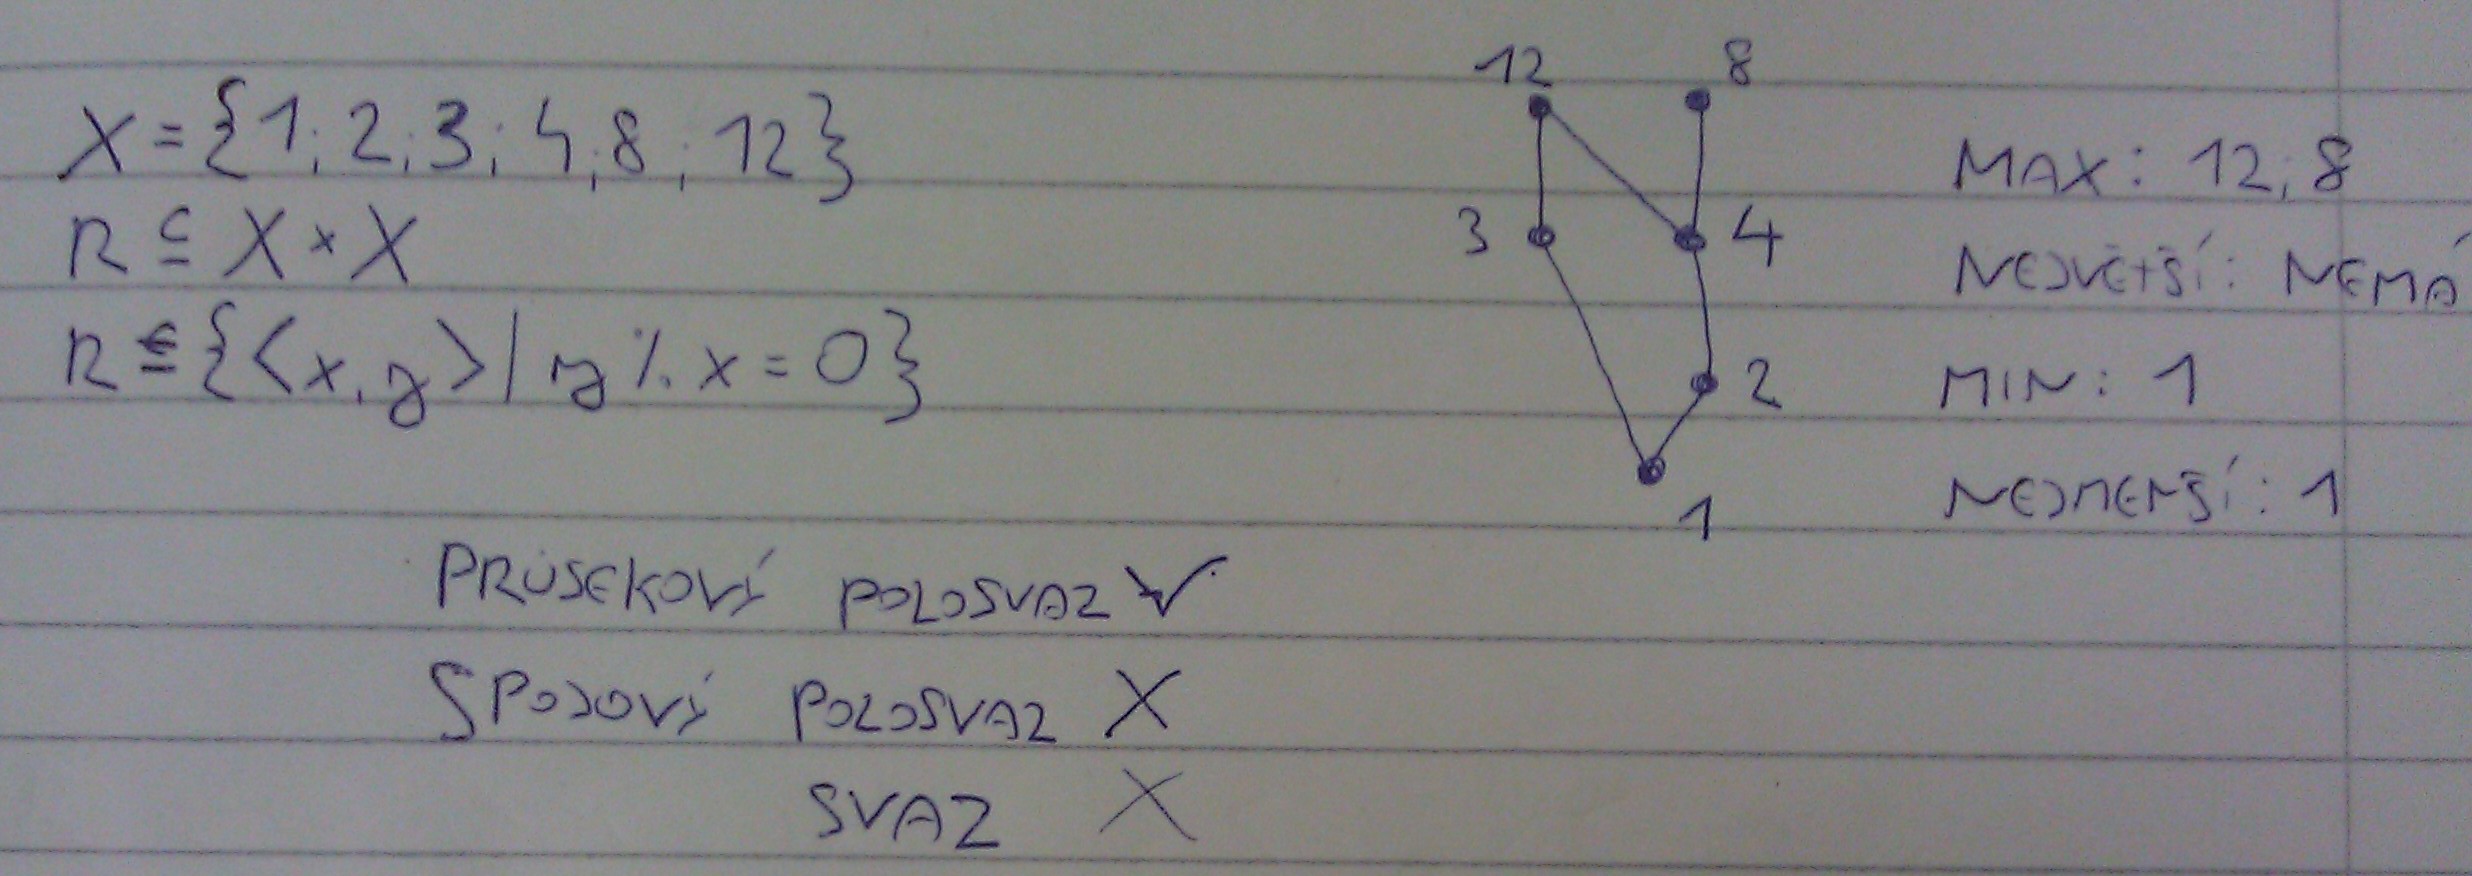 X = {1; 2; 3; 4; 8; 12}
R ⊆ X × X
R = {<x, y> | y % x = 0}
12 8
3 4
2
1
MAX: 12; 8
NEJVĚTŠÍ: NEMÁ
MIN: 1
NEJMENŠÍ: 1
PRŮSEKOVÝ POLOSVAZ ✓
SPOJOVÝ POLOSVAZ X
SVAZ X